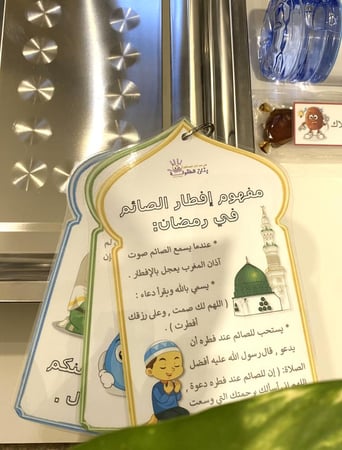 مفهوم إفطار الصائم
في رمضان:
* عندما يسمع الصائم صوت
آذان المغرب يعجل بالإفطار.
* يسمي بالله ويقرأ دعاء :
( اللهم لك صمت , وعلى رزقك
أفطرت ) .
* يستحب للصائم عند فطره أن
يدعو , قال رسول الله عليه أفضل
الصلاة: ( إن للصائم عند فطره دعوة ,
برحمتك التي وسعت